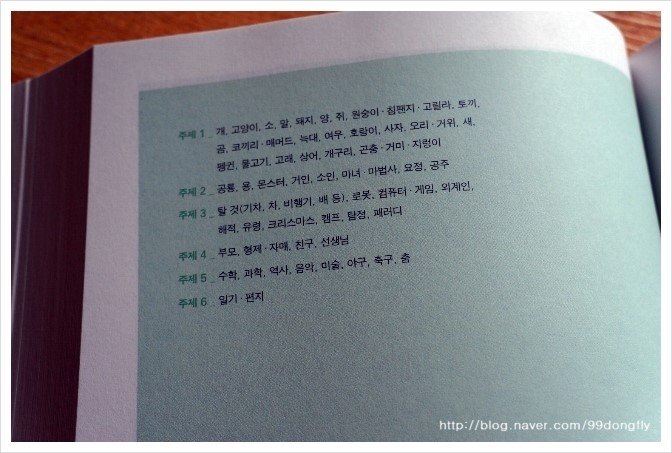 주제 1 _ 개, 고양이, 소, 말, 돼지, 양, 쥐, 원숭이 · 침팬지 · 고릴라, 토끼,
곰, 코끼리 · 매머드, 늑대, 여우, 호랑이, 사자, 오리 · 거위, 새,
펭귄, 물고기, 고래, 상어, 개구리, 곤충 · 거미 · 지렁이
주제 2 _ 공룡, 용, 몬스터, 거인, 소인, 마녀 · 마법사, 요정, 공주
주제 3 _ 탈 것(기차, 차, 비행기, 배 등), 로봇, 컴퓨터 · 게임, 외계인,
해적, 유령, 크리스마스, 캠프, 탐정, 패러디
주제 4 _ 부모, 형제 · 자매, 친구, 선생님
주제 5 _ 수학, 과학, 역사, 음악, 미술, 야구, 축구, 춤
주제 6 _ 일기 · 편지
http://blog.naver.com/99dongfly